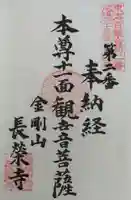 奉納経
第二番
本尊十一面観世音菩薩
金剛山
長榮寺